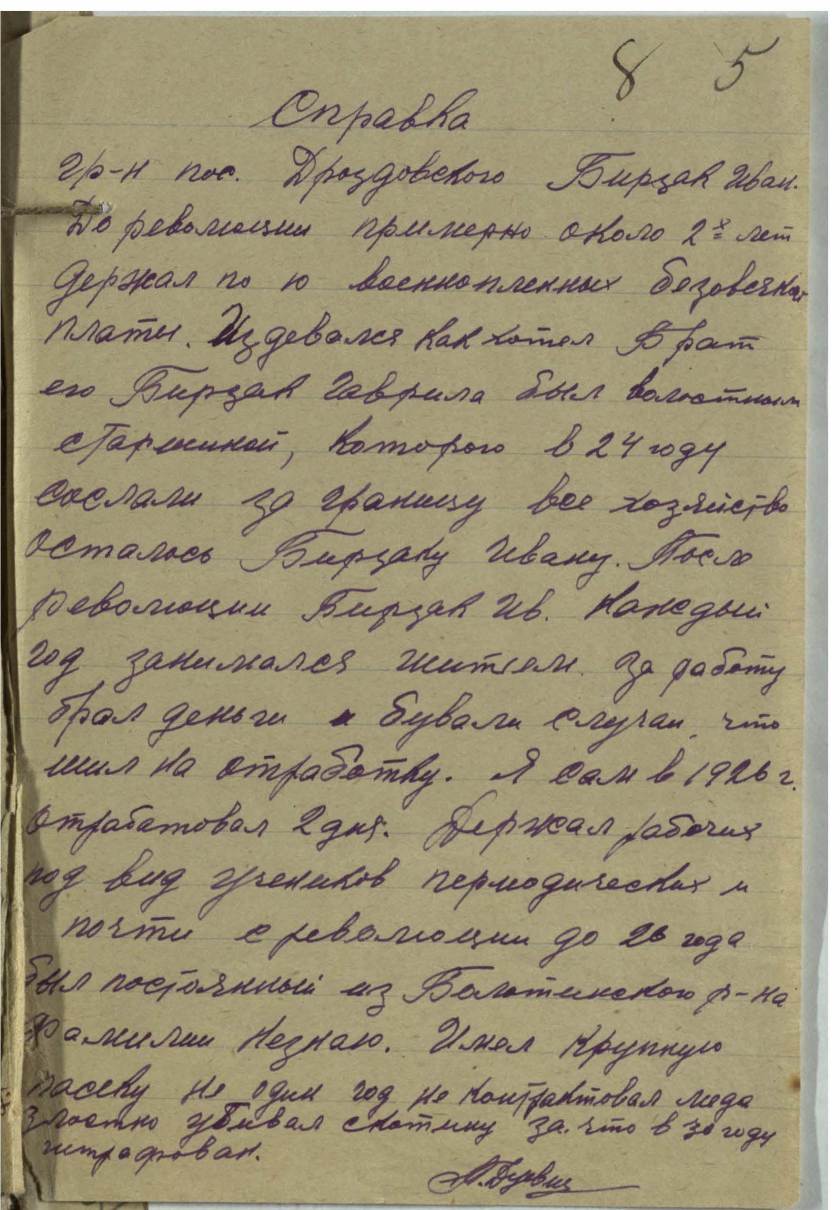 8 5
Справка
гр-н пос. Дроздовского Бирзак Иван.
До революции примерно около 2х лет
держал по 10 военнопленных безовсякой
платы. Издевался как хотел Брат
его Бирзак Гаврила был волостным
старшиной, которого в 24 году
сослали за границу все хозяйство
осталось Бирзаку Ивану. После
революции Бирзак Ив. каждый
год занимался шитьем. За работу
брал деньги и бували случаи, что
шил на отработку. Я сам в 1926 г.
отрабатовал 2 дня. Держал рабочих
под вид учеников периодических и
почти с революции до 26 года
был постоянный из Болотинского р-на
Фамилии незнаю. Имел крупную
пасеку не один год не контрактовал меда
злостно убивал скотину за что в 30 году
штрафован.